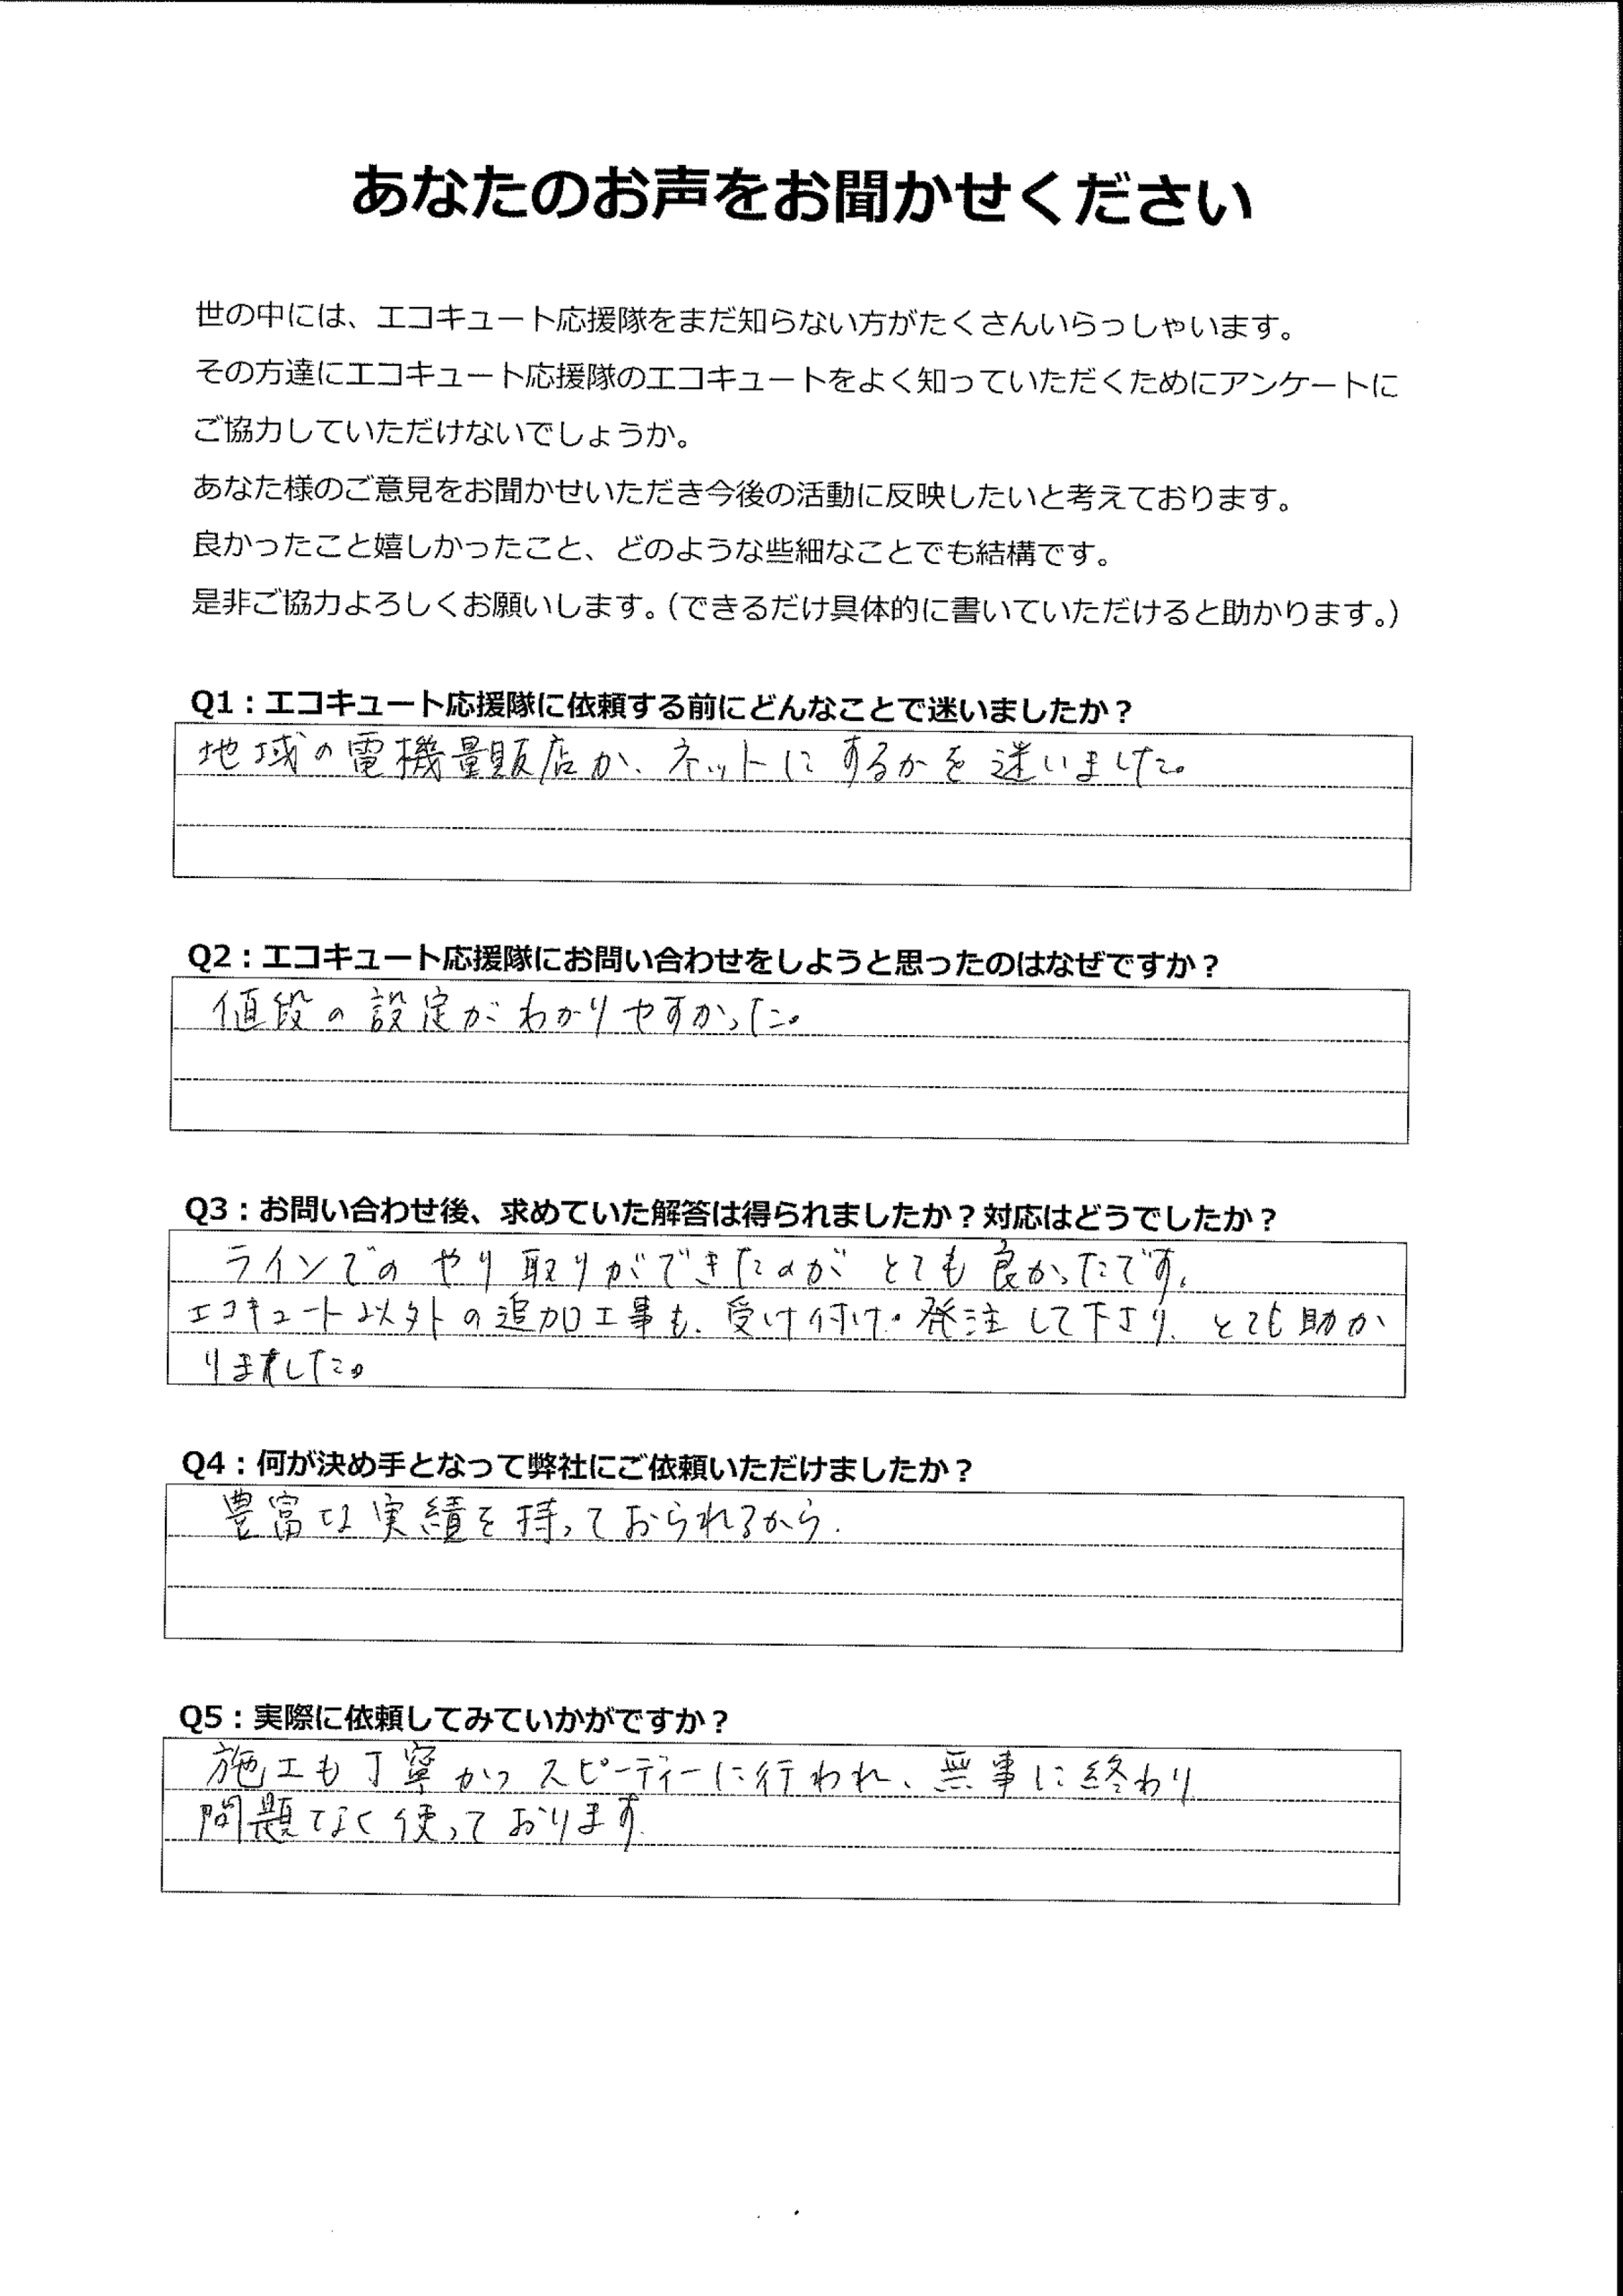 あなたのお声をお聞かせください
世の中には、エコキュート応援隊をまだ知らない方がたくさんいらっしゃいます。
その方達にエコキュート応援隊のエコキュートをよく知っていただくためにアンケートに
ご協力していただけないでしょうか。
あなた様のご意見をお聞かせいただき今後の活動に反映したいと考えております。
良かったこと嬉しかったこと、どのような些細なことでも結構です。
是非ご協力よろしくお願いします。（できるだけ具体的に書いていただけると助かります。）
Q1：エコキュート応援隊に依頼する前にどんなことで迷いましたか？
地域の電機量販店か、ネットにするかを迷いました。
Q2：エコキュート応援隊にお問い合わせをしようと思ったのはなぜですか？
値段の設定がわかりやすかった。
Q3：お問い合わせ後、求めていた解答は得られましたか？対応はどうでしたか？
ラインでのやり取りができたのがとても良かったです。
エコキュート以外の追加工事も、受け付け・発注して下さり、とても助か
りました。
Q4：何が決め手となって弊社にご依頼いただけましたか？
豊富な実績を持っておられるから.
Q5：実際に依頼してみていかがですか？
施工も丁寧かつスピーディーに行われ、無事に終わり
問題なく使っております.